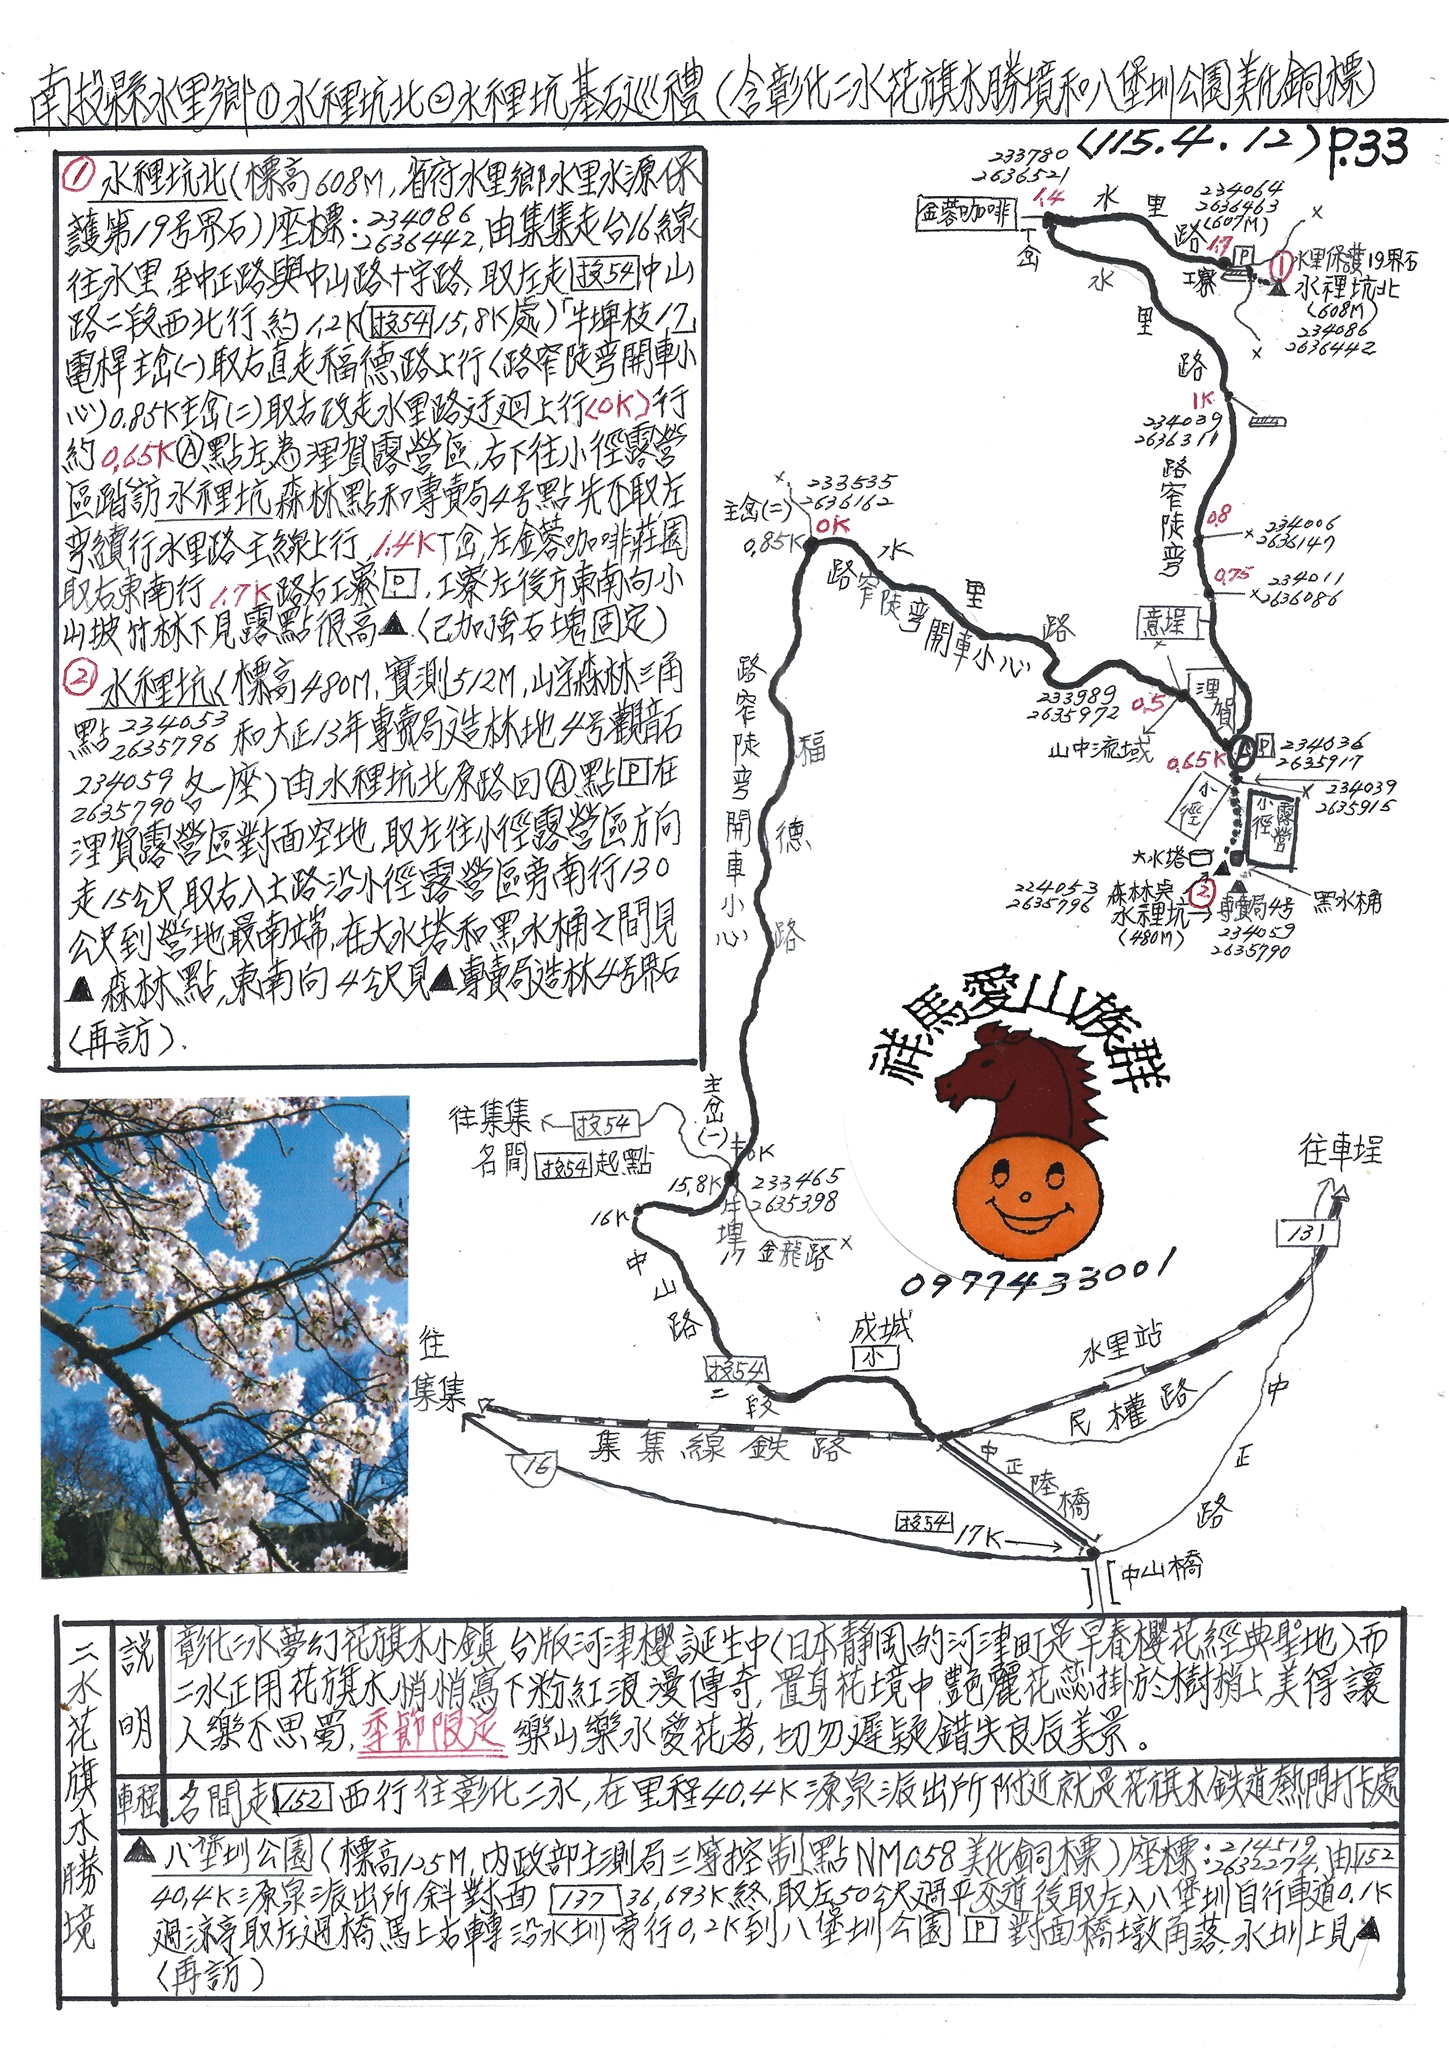 南投縣水里鄉①水裡坑北②水裡坑基石巡禮(含彰化二水花旗木勝境和八堡圳公園美化銅標)
(115.4.12) P.33
① 水裡坑北(標高608M,省府水里鄉水里水源保
護第19号界石)座標:234086 2636442,由集集走台16線
往水里,至中正路與中山路十字路,取左走投54中山
路二段西北行,約1.2K(投54 15.8K處)「牛埤枝17」
電桿主岔(一)取右直走福德路上行(路窄陡彎開車小
心)0.85K主岔(二)取右改走水里路迂迴上行(0K)行
約0.65KⒶ點左為浬賀露營區,右下往小徑露營
區踏訪水裡坑森林點和專賣局4号點先不取,左
彎續行水里路主線上行,1.4K丁岔,左金蓉咖啡莊園
取右東南行1.7K路右工寮P,工寮左後方東南向小
山坡竹林下見露點很高▲(已加強石塊固定)
② 水裡坑(標高480M,實測512M,山字森林三角
點234053 2635796 和大正13年專賣局造林地4号觀音石
234059 2635790 各一座)由水裡坑北原路回Ⓐ點P在
浬賀露營區對面空地,取左往小徑露營區方向
走15公尺,取右入土路沿小徑露營區旁南行130
公尺到營地最南端,在大水塔和黑水桶之間見
▲森林點,東南向4公尺見▲專賣局造林4号界石
(再訪).
233780
2636521
1.4
金蓉咖啡
丁岔
水里路
234064
2636463
(607M)
1.7
P
工寮
① 水里保護19界石
水裡坑北
(608M)
234086
2636442
水里路
1K
234039
2636311
路窄陡彎
0.8
234006
2636147
0.75
234011
2636086
意埕
浬賀
233535
2636162
主岔(二)
0K
0.85K
水里路
路窄陡彎開車小心
233989
2635972
0.5
山中流域
0.65K
A
P
234036
2635917
234039
2635915
小徑
小徑露營
大水塔
黑水桶
224053
2635796
森林點
水裡坑→
(480M)
②
專賣局4号
234059
2635790
路窄陡彎開車小心
福德路
祥馬愛山族群
0977433001
主岔(一)
往集集
投54
名間
投54起點
0K
15.8K
233465
2635398
牛埤17
金龍路
16K
中山路
投54
二段
成城
小
往集集
集集線鉄路
16
水里站
民權路
往車埕
131
中正路
中正陸橋
投54
17K
中山橋
二水花旗木勝境
說明
彰化二水夢幻花旗木小鎮,台版河津櫻誕生中(日本靜岡的河津町是早春櫻花經典聖地)而
二水正用花旗木悄悄寫下粉紅浪漫傳奇,置身花境中,艷麗花蕊掛於樹梢上,美得讓
人樂不思蜀,季節限定 樂山樂水愛花者,切勿遲疑錯失良辰美景。
車程
名間走152西行往彰化二水,在里程40.4K源泉派出所附近就是花旗木鉄道熱門打卡處
▲八堡圳公園(標高125M,內政部土測局三等控制點NM058美化銅標)座標:214519 2632274,由152
40.4K源泉派出所斜對面137 36.693K終,取左50公尺過平交道後取左入八堡圳自行車道0.1K
過涼亭取左過橋馬上右轉沿水圳旁行0.2K到八堡圳公園P對面橋墩角落,水圳上見▲
(再訪)